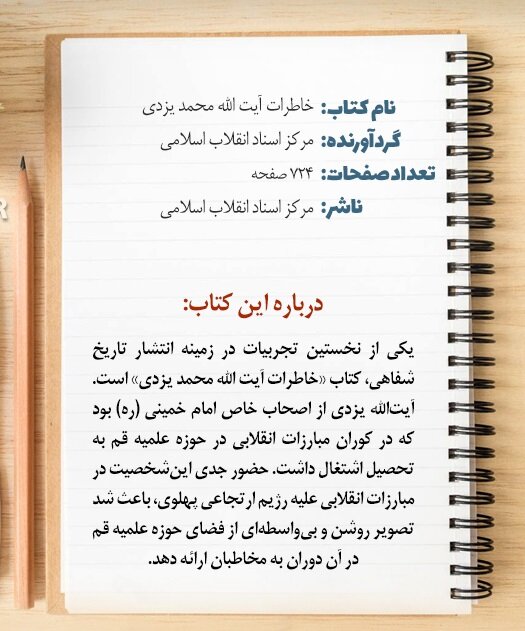 نام کتاب: خاطرات آیت الله محمد یزدی
گردآورنده: مرکز اسناد انقلاب اسلامی
تعداد صفحات: ۷۲۴ صفحه
ناشر: مرکز اسناد انقلاب اسلامی
درباره این کتاب:
یکی از نخستین تجربیات در زمینه انتشار تاریخ
شفاهی، کتاب «خاطرات آیت الله محمد یزدی» است.
آیت‌الله یزدی از اصحاب خاص امام خمینی (ره) بود
که در کوران مبارزات انقلابی در حوزه علمیه قم به
تحصیل اشتغال داشت. حضور جدی این‌شخصیت در
مبارزات انقلابی علیه رژیم ارتجاعی پهلوی، باعث شد
تصویر روشن و بی‌واسطه‌ای از فضای حوزه علمیه قم
در آن دوران به مخاطبان ارائه دهد.